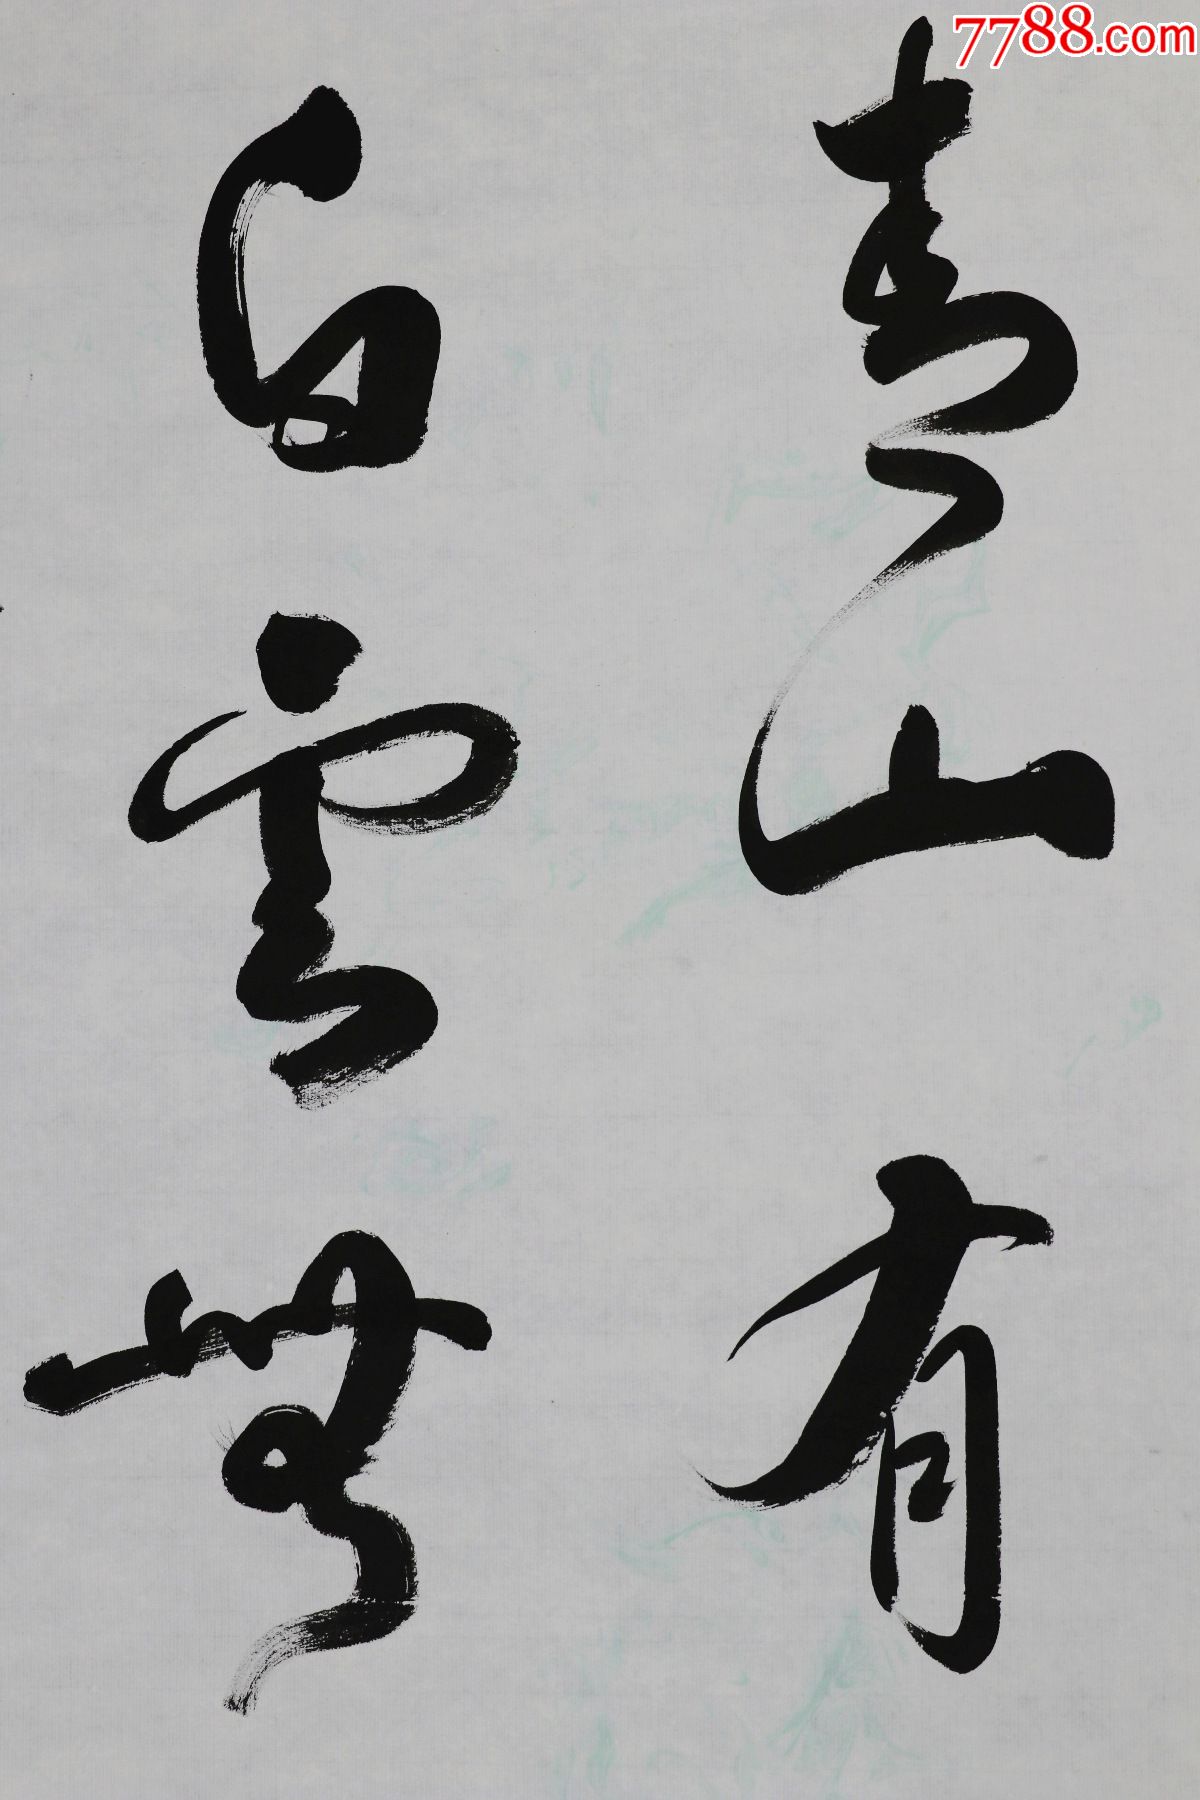 7788.com
青山有
白雲無